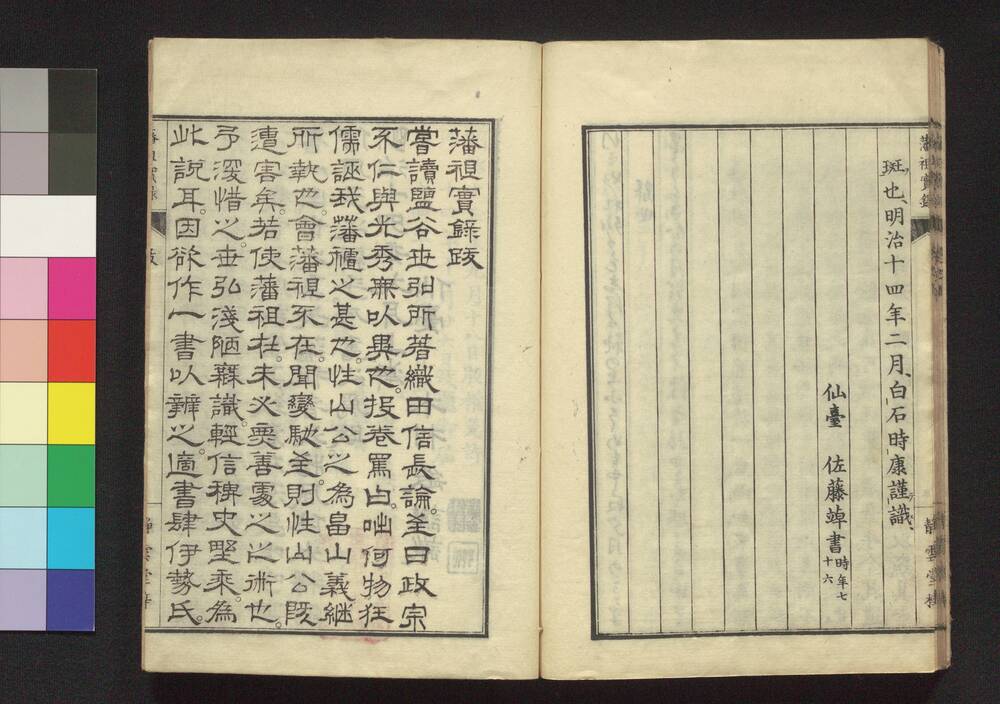 藩祖實錄
斑也、明治十四年二月、白石時康謹識、
仙臺 佐藤 書 時年七十六
靜雲堂
藩祖實錄跋
嘗讀鹽谷世弘所著織田信長論。至曰政宗
不仁與光秀無以異也。投卷罵曰。咄何物狂
儒誣我藩祖之甚也。性山公之為畠山義継
所執也。會藩祖不在。聞變馳至。則性山公既
遭害矣。若使藩祖在。未必無善處之之術也。
予深惜之。世弘淺陋寡識。輕信稗史野乘。為
此說耳。因欲作一書以辨之。適書肆伊勢氏。